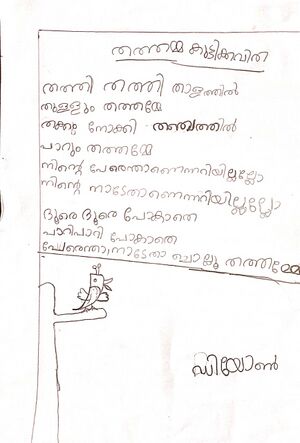 തത്തമ്മ കുട്ടിക്കവിത
തത്തി തത്തി താളത്തിൽ
തുള്ളും തത്തയേ
തക്കം നോക്കി തഞ്ചത്തിൽ
പാറും തത്തയേ
നിന്റെ പേരെന്താണെന്നറിയില്ലല്ലോ
നിന്റെ നാടേതാണെന്നറിയില്ലല്ലോ
ദൂരെ ദൂരെ പോകാതെ
പാറിപാറി പോകാതെ
പേരെന്താ,നാടേതാ ചൊല്ലൂ തത്തമ്മേ
ഡിയോൺ